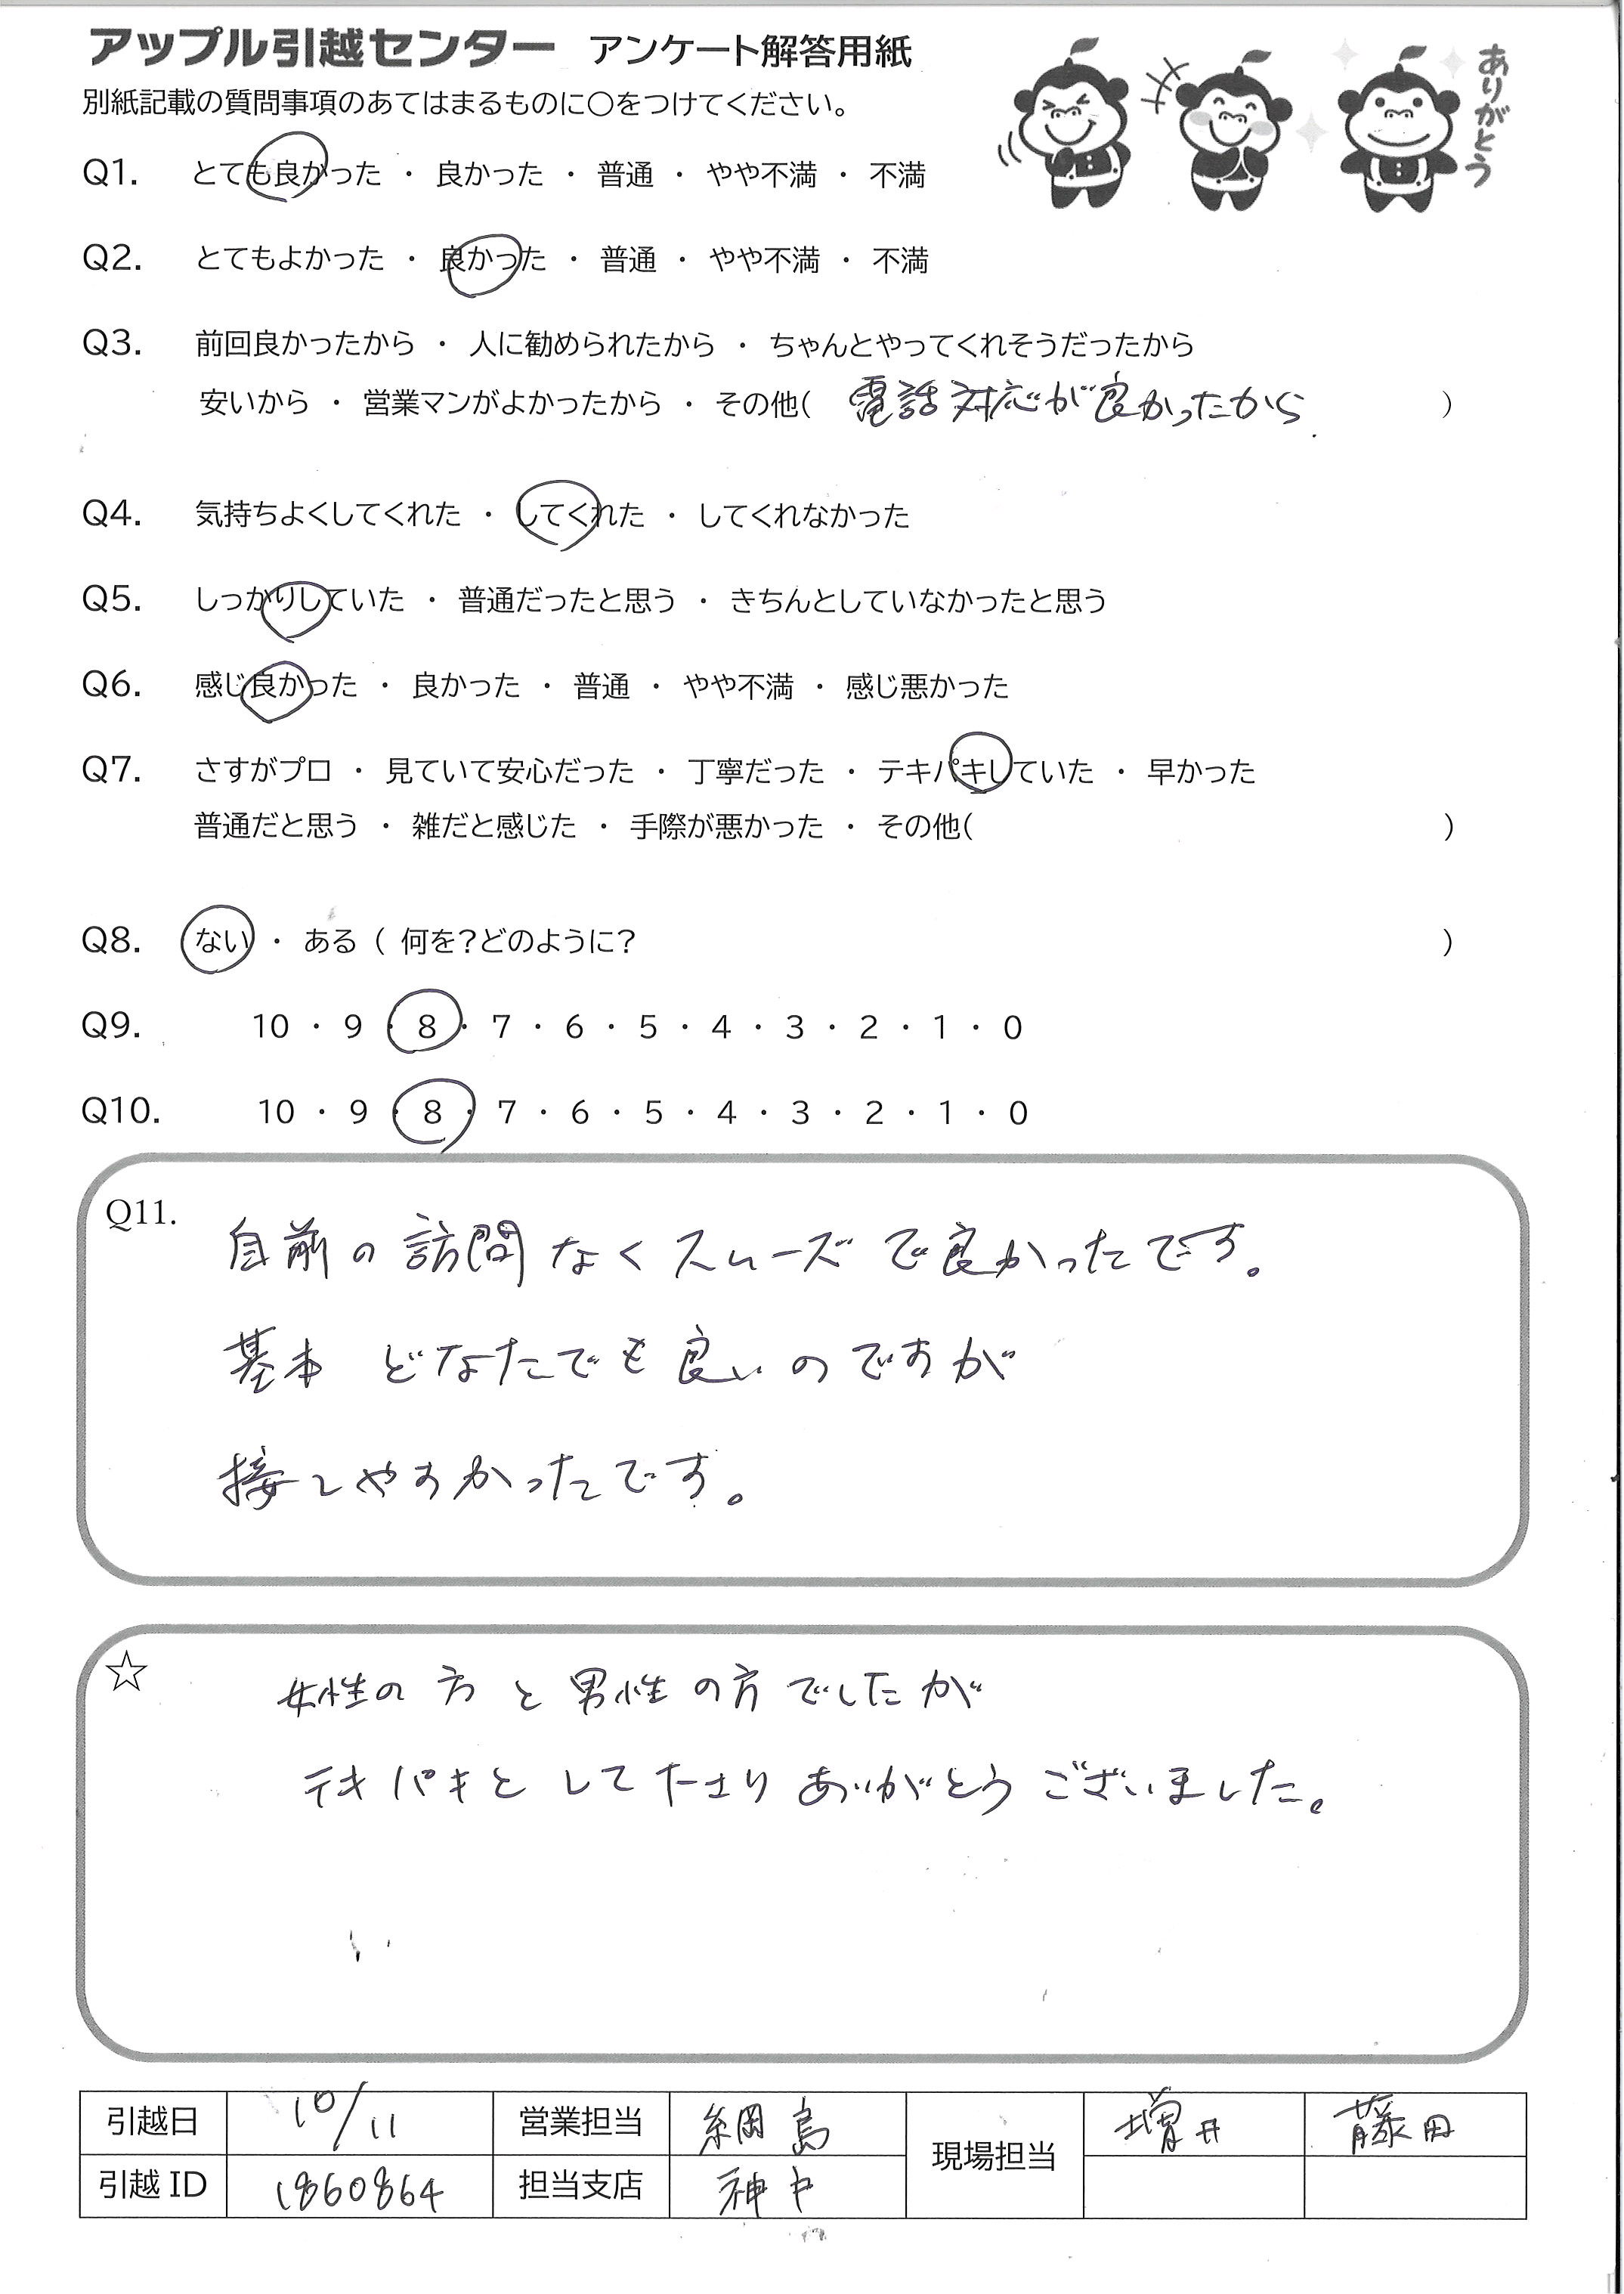 アップル引越センター アンケート解答用紙
別紙記載の質問事項のあてはまるものに○をつけてください。
ありがとう
Q1. とても良かった ・ 良かった ・ 普通 ・ やや不満 ・ 不満
Q2. とてもよかった ・ 良かった ・ 普通 ・ やや不満 ・ 不満
Q3. 前回良かったから ・ 人に勧められたから ・ ちゃんとやってくれそうだったから
安いから ・ 営業マンがよかったから ・ その他( 電話対応が良かったから )
Q4. 気持ちよくしてくれた ・ してくれた ・ してくれなかった
Q5. しっかりしていた ・ 普通だったと思う ・ きちんとしていなかったと思う
Q6. 感じ良かった ・ 良かった ・ 普通 ・ やや不満 ・ 感じ悪かった
Q7. さすがプロ ・ 見ていて安心だった ・ 丁寧だった ・ テキパキしていた ・ 早かった
普通だと思う ・ 雑だと感じた ・ 手際が悪かった ・ その他( )
Q8. ない ・ ある ( 何を?どのように? )
Q9. 10 ・ 9 ・ 8 ・ 7 ・ 6 ・ 5 ・ 4 ・ 3 ・ 2 ・ 1 ・ 0
Q10. 10 ・ 9 ・ 8 ・ 7 ・ 6 ・ 5 ・ 4 ・ 3 ・ 2 ・ 1 ・ 0
Q11. 自前の訪問なくスムーズで良かったです。
基本 どなたでも良いのですが
接しやすかったです。
☆ 女性の方と男性の方でしたが
テキパキとして下さりありがとうございました。
引越日 10/11 営業担当 綱島 現場担当 増井 藤田
引越ID 1860864 担当支店 神戸